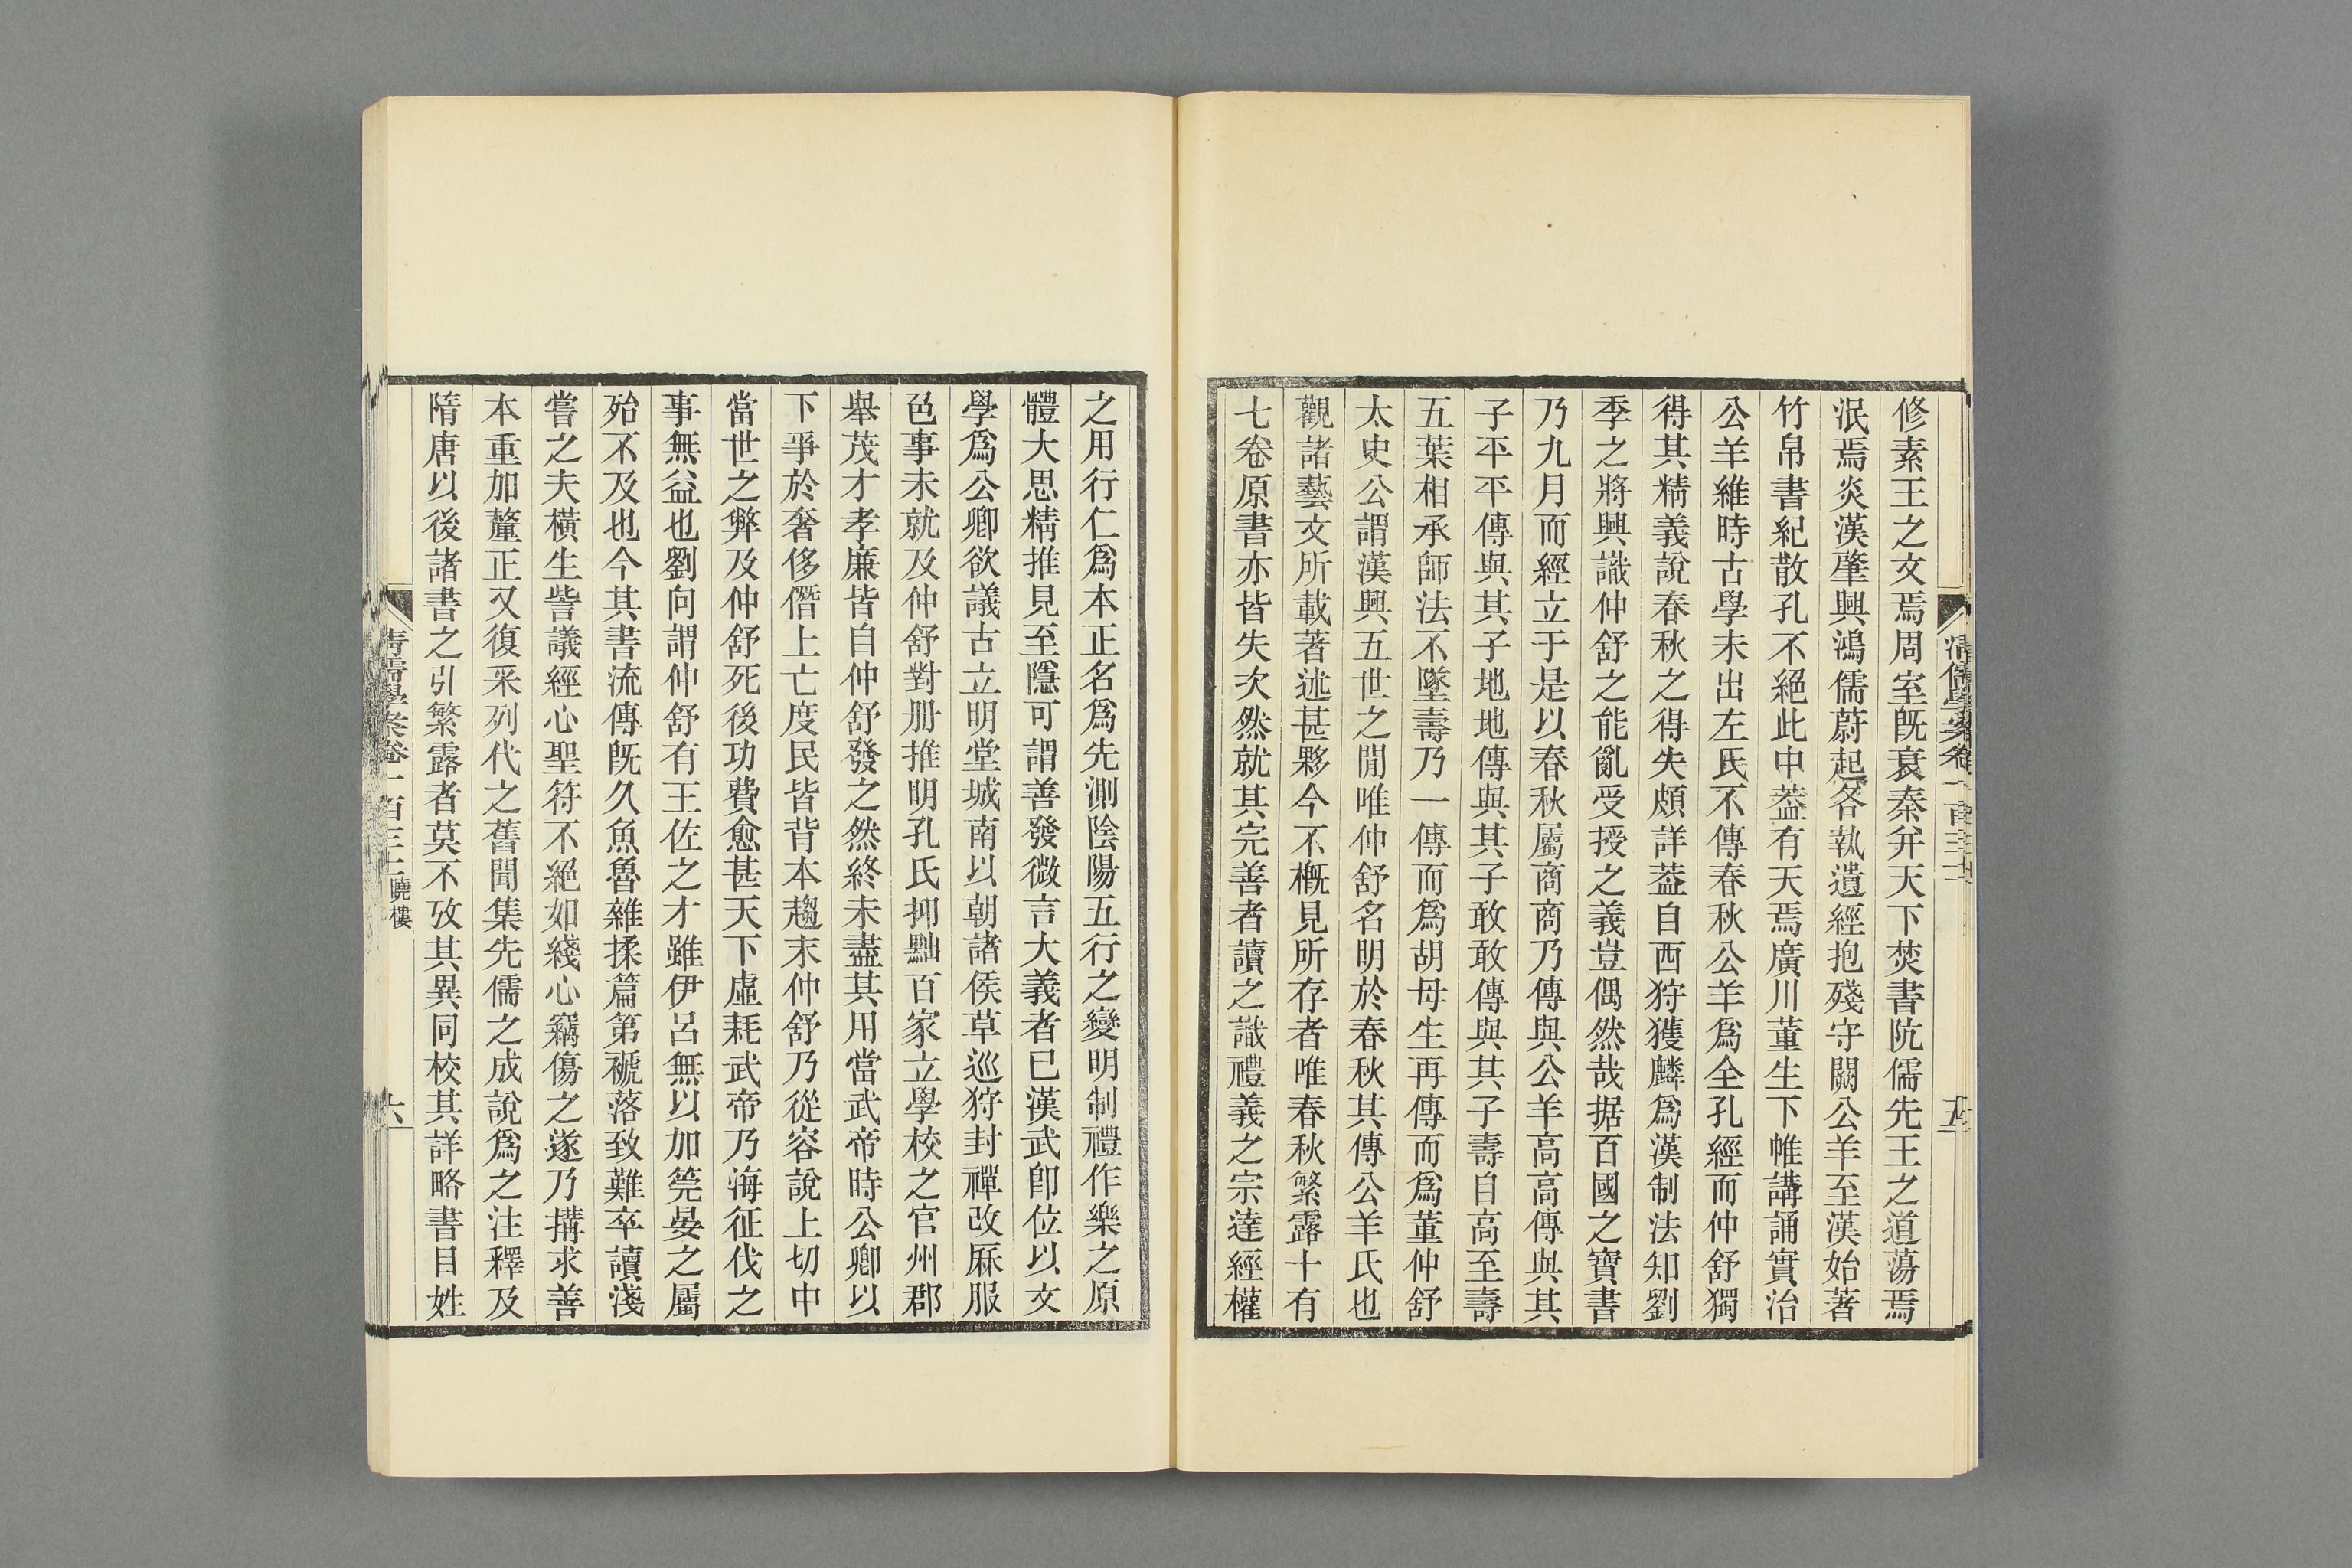 修素王之文焉周室旣衰秦幷天下焚書阬儒先王之道蕩焉
泯焉炎漢肇興鴻儒蔚起各執遺經抱殘守闕公羊至漢始著
竹帛書紀散孔不絕此中葢有天焉廣川董生下帷講誦實治
公羊維時古學未出左氏不傳春秋公羊爲全孔經而仲舒獨
得其精義說春秋之得失頗詳葢自西狩獲麟爲漢制法知劉
季之將興識仲舒之能亂受授之義豈偶然哉据百國之寶書
乃九月而經立于是以春秋屬商商乃傳與公羊高高傳與其
子平平傳與其子地地傳與其子敢敢傳與其子壽自高至壽
五葉相承師法不墜壽乃一傳而爲胡母生再傳而爲董仲舒
太史公謂漢興五世之閒唯仲舒名明於春秋其傳公羊氏也
觀諸藝文所載著述甚夥今不槪見所存者唯春秋繁露十有
七卷原書亦皆失次然就其完善者讀之識禮義之宗達經權
清儒學案卷一百三十一
五
之用行仁爲本正名爲先測陰陽五行之變明制禮作樂之原
體大思精推見至隱可謂善發微言大義者已漢武卽位以文
學爲公卿欲議古立明堂城南以朝諸侯草巡狩封禪改厤服
色事未就及仲舒對册推明孔氏抑黜百家立學校之官州郡
舉茂才孝廉皆自仲舒發之然終未盡其用當武帝時公卿以
下爭於奢侈僭上亡度民皆背本趨末仲舒乃從容說上切中
當世之弊及仲舒死後功費愈甚天下虛耗武帝乃海征伐之
事無益也劉向謂仲舒有王佐之才雖伊呂無以加筦晏之屬
殆不及也今其書流傳旣久魚魯雜揉篇第褫落致難卒讀淺
嘗之夫橫生訾議經心聖符不絕如綫心竊傷之遂乃搆求善
本重加釐正又復采列代之舊聞集先儒之成說爲之注釋及
隋唐以後諸書之引繁露者莫不攷其異同校其詳略書目姓
清儒學案卷一百三十一 曉樓
六